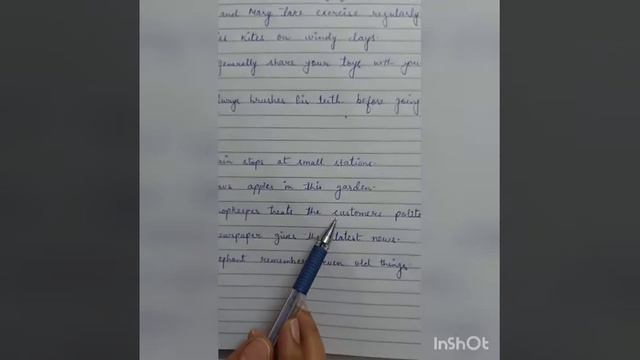 and Mary take exercise regularly
kites on windy days.
generally share your toys with you
always brushes his teeth before going
stops at small stations.
apples in this garden.
treats the customers polite
newspaper gives the latest news.
remembers even old things
InShOt